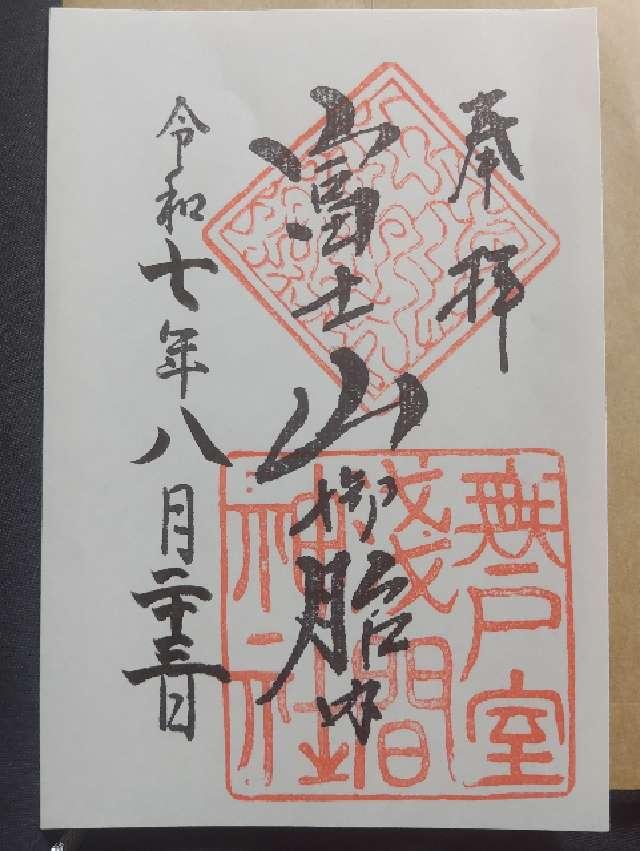 奉拝
富士山御胎内
無戸室
浅間
神社
令和七年八月二十三日